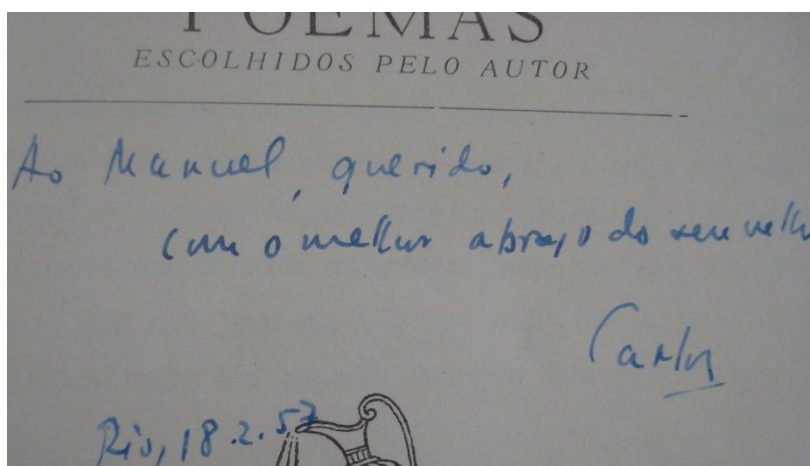 POEMAS
ESCOLHIDOS PELO AUTOR
Ao Manuel, querido,
com o melhor abraço do seu velho
Carlos
Rio, 18.2.57